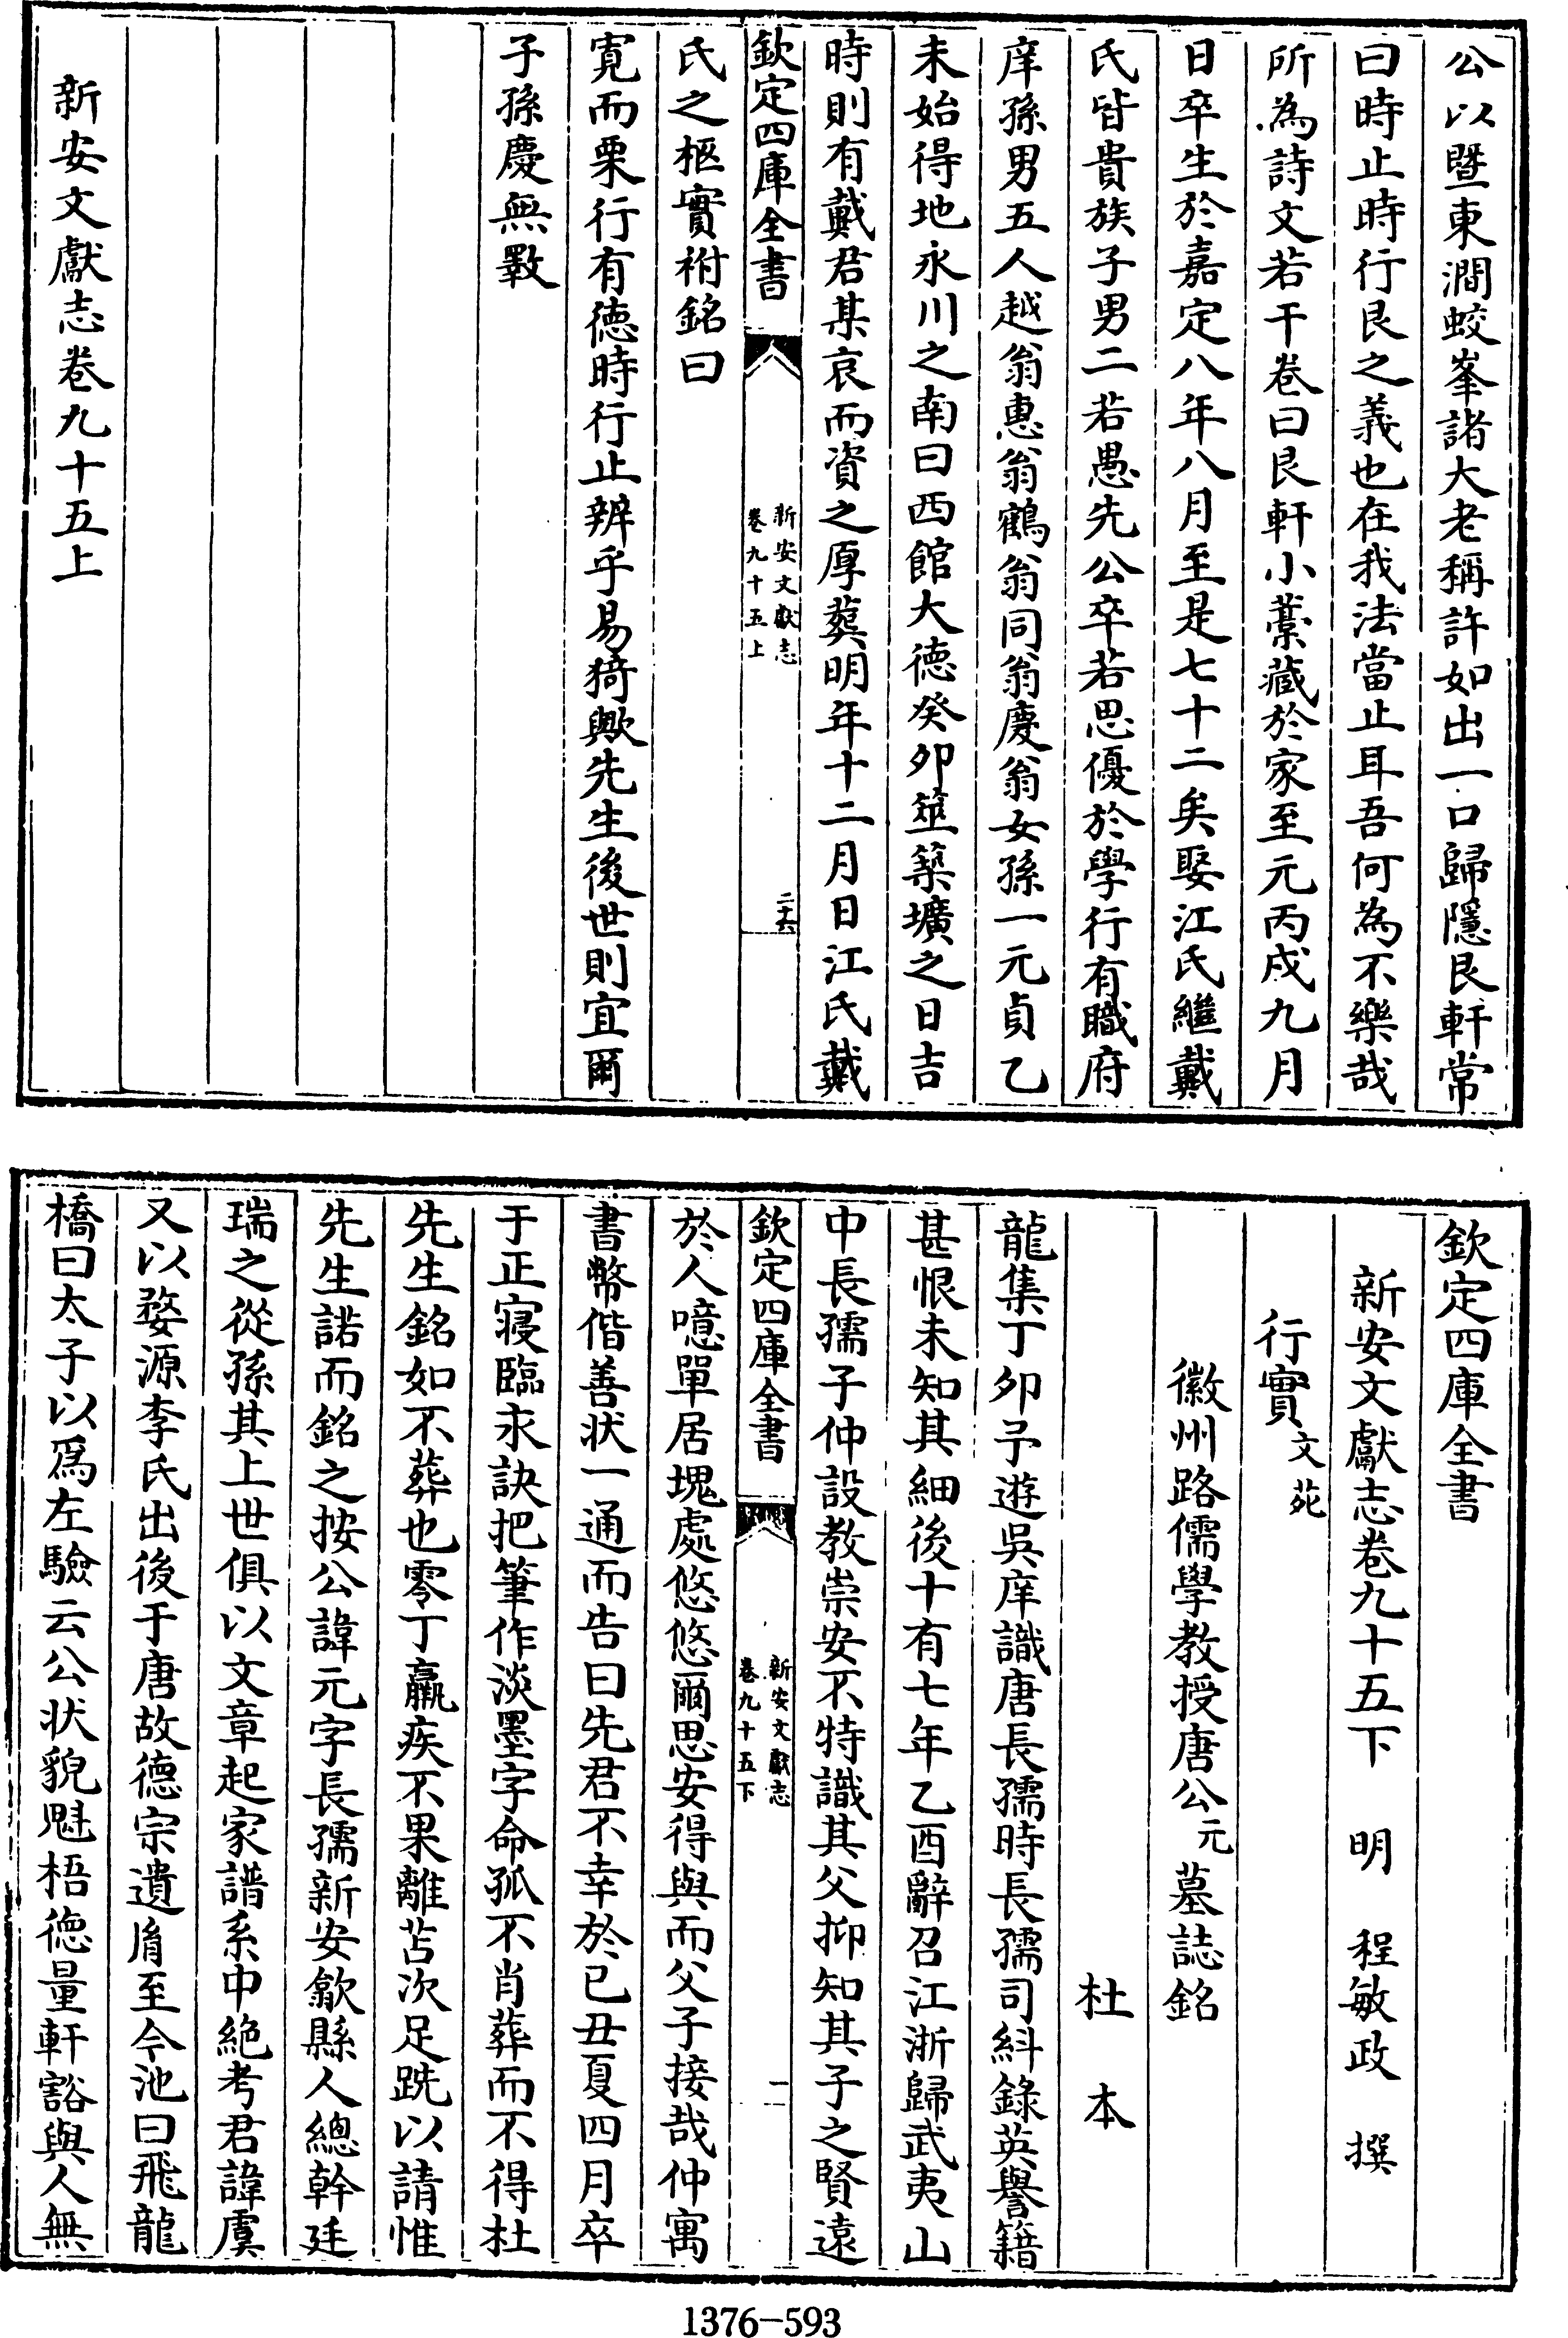 公以暨東澗蛟峯諸大老稱許如出一口歸隱艮軒常
曰時止時行艮之義也在我法當止耳吾何為不樂哉
所為詩文若干卷曰艮軒小藁藏於家至元丙戌九月
日卒生於嘉定八年八月至是七十二矣娶江氏繼戴
氏皆貴族子男二若愚先公卒若思優於學行有職府
庠孫男五人越翁惠翁鶴翁同翁慶翁女孫一元貞乙
未始得地永川之南曰西館大德癸卯筮築壙之日吉
時則有戴君某哀而資之厚葬明年十二月日江氏戴
欽定四庫全書
新安文獻志
卷九十五上
二十六
氏之柩實祔銘曰
寬而栗行有德時行止辨乎易猗歟先生後世則宜爾
子孫慶無斁
新安文獻志卷九十五上
欽定四庫全書
新安文獻志卷九十五下 明 程敏政 撰
行實文苑
徽州路儒學教授唐公元墓誌銘
杜本
龍集丁卯予遊吳庠識唐長孺時長孺司糾錄英譽籍
甚恨未知其細後十有七年乙酉辭召江浙歸武夷山
中長孺子仲設教崇安不特識其父抑知其子之賢遠
欽定四庫全書
新安文獻志
卷九十五下
一
於人噫單居塊處悠悠爾思安得與而父子接哉仲寓
書幣偕善狀一通而告曰先君不幸於己丑夏四月卒
于正寢臨永訣把筆作淡墨字命孤不肖葬而不得杜
先生銘如不葬也零丁羸疾不果離苫次足跣以請惟
先生諾而銘之按公諱元字長孺新安歙縣人總幹廷
瑞之從孫其上世俱以文章起家譜系中絕考君諱虞
又以婺源李氏出後于唐故德宗遺胤至今池曰飛龍
橋曰太子以爲左驗云公狀貌魁梧德量軒豁與人無
1376-593